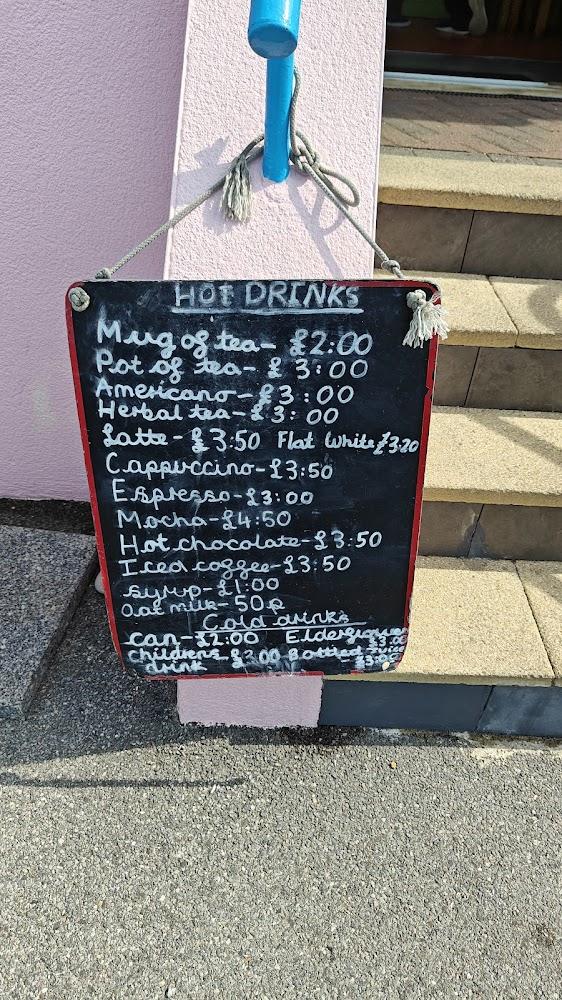 HOT DRINKS
Mug of tea- £2:00
Pot of tea- £3:00
Americano- £3:00
Herbal tea- £3:00
Latte- £3:50 Flat White £3.20
Cappuccino- £3:50
Espresso- £3:00
Mocha- £4:50
Hot chocolate- £3:50
Iced coffee- £3:50
syrup- £1:00
Oat milk- 50p
Cold drinks
can- £2:00 Elderflower £3.00
Childrens drink £2.00 Bottled Juice - £3:00